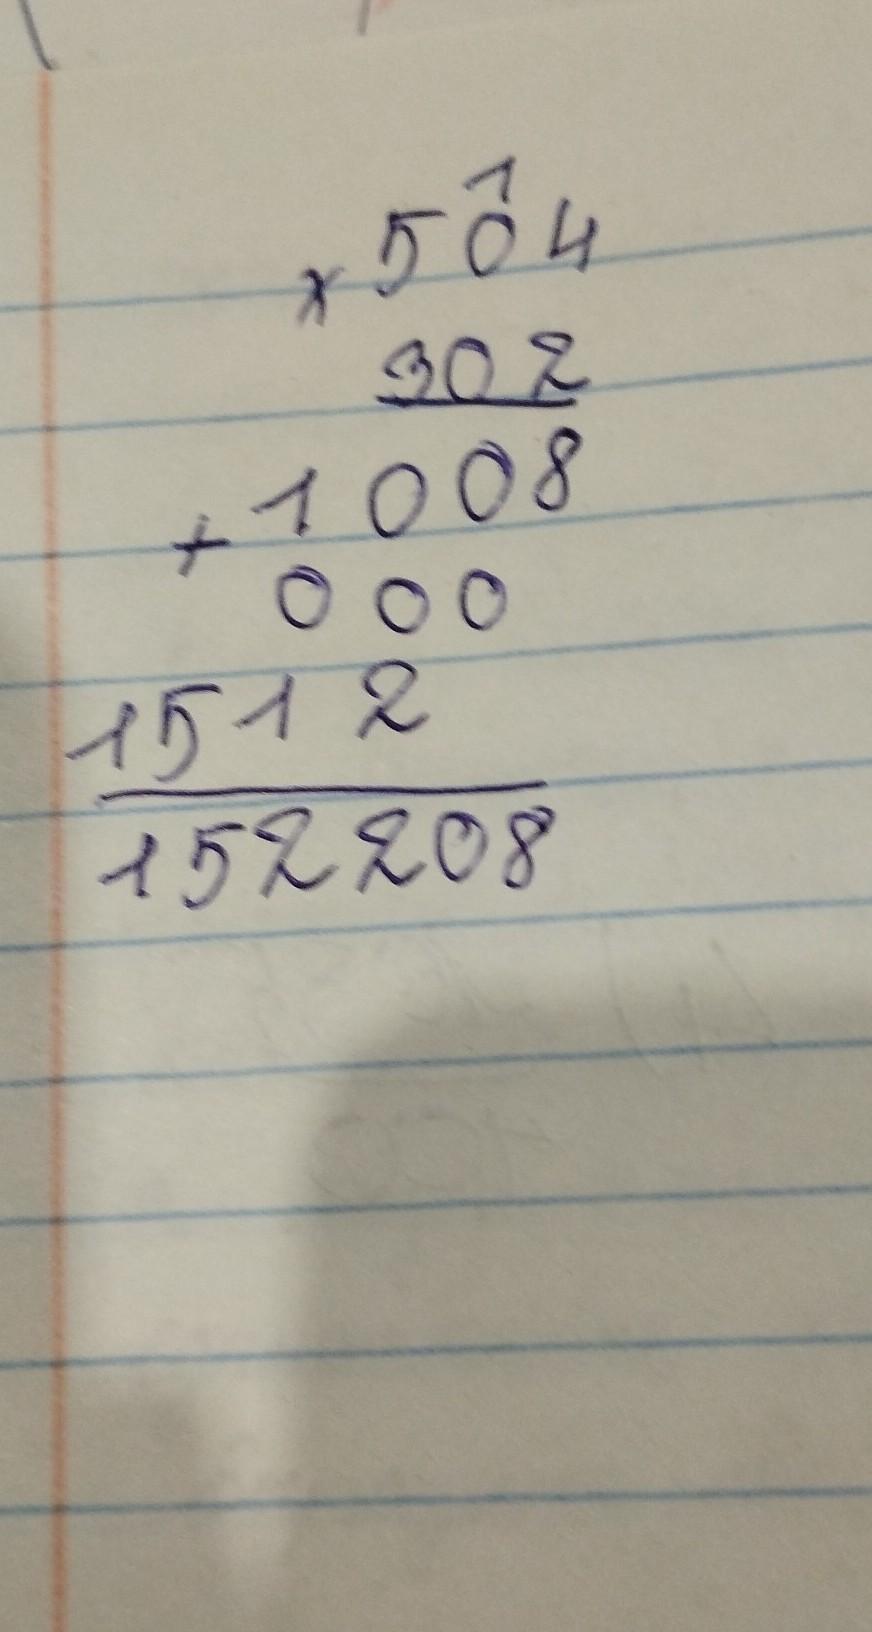 1
x 504
302
+ 1008
000
1512
152208